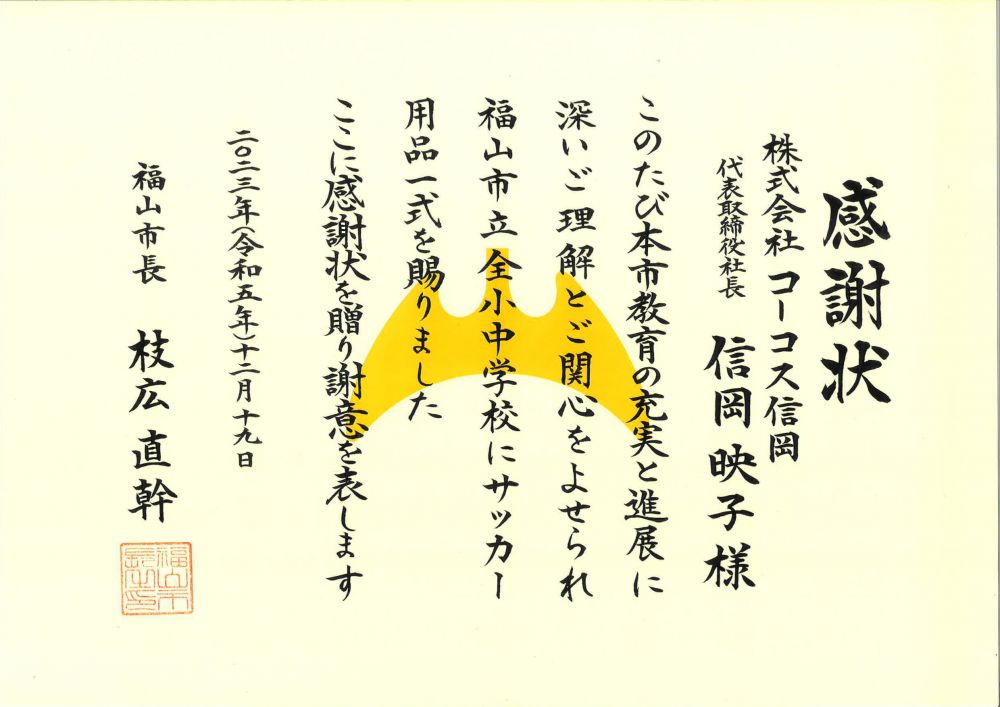 感謝状
株式会社 コーコス信岡
代表取締役社長 信岡 映子 様
このたび本市教育の充実と進展に
深いご理解とご関心をよせられ
福山市立全小中学校にサッカー
用品一式を賜りました
ここに感謝状を贈り謝意を表します
二〇二三年(令和五年)十二月十九日
福山市長 枝広 直幹
福山市
長之印